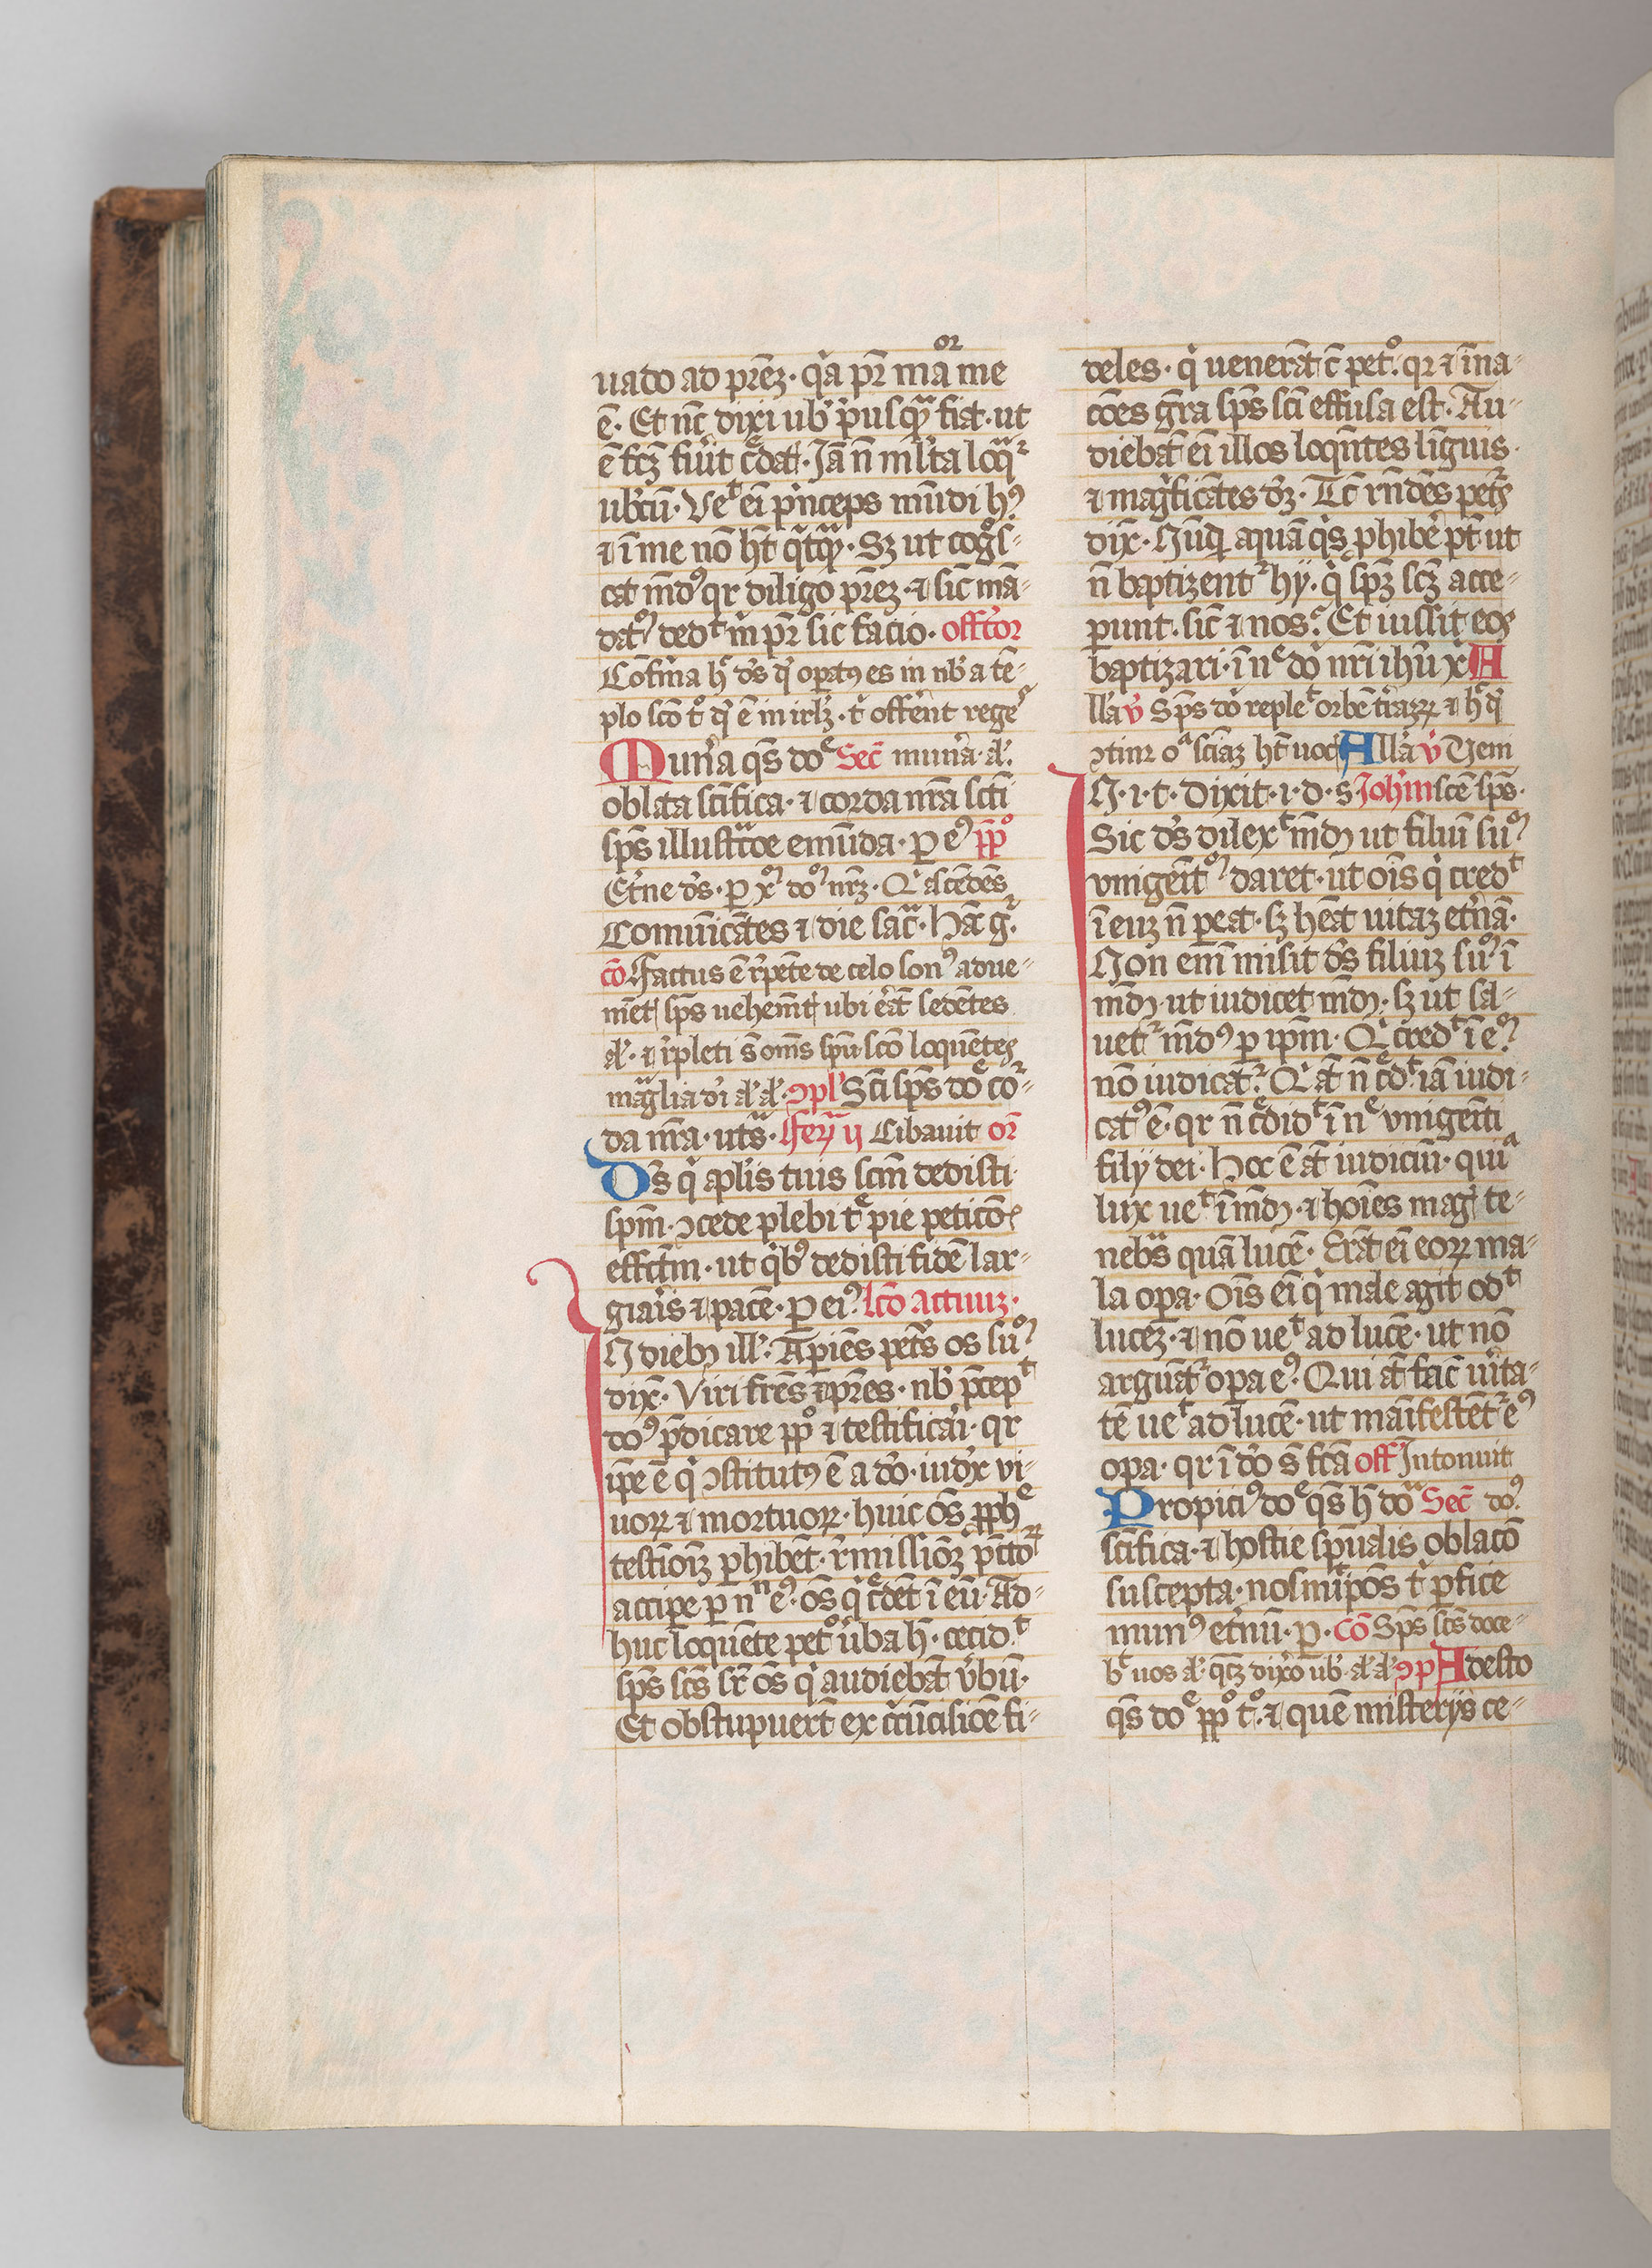 or
uado ad prēz· qͥa pr̄ maͣ me
ē· Et nc̄ dixi ub̕ pͥusqꝫ fiat· ut
ē fcꝫ fiu̕it cͤdat᷒· Jā n̄ ml̕ta loqͣr
ub̕cū· Veᵗ ei̅ pͥnceps mūdi hꝰ
⁊ i̅ me nō ht̄ qͥtqꝫ· Sꝫ ut cogͦs-
cat mdꝰ qr diligo prēz· ⁊ sic̄ mā-
datͦꝰ dedᵗ mͥ pr̄ sic facio· offc̄tor
Cōfirma hͨ ds̄ qͩ opatꝰ es in nb̕ a tē-
plo scō tͦ qͩ ē in irlꝫ· tͥ offerēnt regeˢ
Mun̕a qs̄ doͤ Sec̄ mun̕a· a̕·
oblata sc̄tifica· ⁊ corda nr̄a scī
sps̄ illustͣcōe emūda· ꝑ eꝰ pp̄ͦ
Et̕ne ds̄· ꝑ xͫ doͫ nrꝫ· Qͥ ascēdēs
Comūicātes ⁊ die sacͣ· Hāc gͬ·
cō Factus ē r̕pēte de celo sonꝰ adue-
niēt᷒ sps̄ uehemēt᷒ ubi er̕āt sedētes
a̕· ⁊ r̕pleti s̄ omēs spū scō loquētes
magͣlia di̕ a̕ a̕· ↄpl̕ Scī sps̄ doͤ coͬ-
da nr̄a· uts̄· Fer̕ ij Cibauit or̄
Ds̄ qͥ apl̕is tuis scm̄ dedisti
spm̄· ↄcede plebi tͤ pie peticōi᷒
effc̄tm· ut qͥbꝰ dedisti fidē lar-
giar̕is ⁊ pacē· ꝑ eiꝰ lcō actuuꝫ·
N diebꝫ ill̕· Apiēs petͬs os suͫ
dix̄· Viri frēs ⁊ prēs· nb̕ pͣcepᵗ
doꝰ pͣdicare pp̄ͦ ⁊ testificar̕i· qr
ipe ē qͥ ↄstitutꝰ ē a do̕· iudex vi-
uoꝝ ⁊ mortuoꝝ· huic os̄ pphͤ
testīoiꝫ phibēt· r̕missiōꝫ pctoꝝ
accipe ꝑ nⁿ eꝰ· os̄ qͥ cͤdēt i̅ eū· Ad-
huc loquēte petͦ ūba hͨ· cecidᵗ
sps̄ scs̄ sr̄ os̄ qͥ audiebāt v̕bū·
Et obstupuer̄t ex cͥcūcisiōe fi-
deles· qͥ venerāt c̄ petͦ· qr ⁊ i̅ na-
cōes gr̄a sps̄ scī effusa est· Au-
diebāt ei̅ illos loqūtes li̅guis·
⁊ magͥficātes dꝫ· Tc̄ rn̄dēs petͬs
dix̄· Nūqͥ aquā qͥs phibe̕ pt̄ ut
n̄ baptizentͬ hÿ· qͥ spꝫ scꝫ acce-
punt· sic̄ ⁊ nosͨ· Et iussit eos
baptizari· i̅ nͤ do̕ nr̄i ihū x̕ A
ll̕a v̕ Sps̄ do̕ repleᵗ orbē tr̕aꝝ ⁊ hͨ qͩ
ↄtinꝫ oᵃ sciaꝫ ht̄ uoc᷒ All̕a v̕ Veni
N· i· t· Dixit· i· d· s Johm̄ scē sps̄·
Sic ds̄ dilexᵗ mdꝫ ut filiū suͫ
vnigeītͫ daret· ut ois̄ qͥ credᵗ
i̅ euꝫ n̄ peat· sꝫ hēat uitaꝫ et̕nā·
Non em̄ misit ds̄ filiuꝫ suͫ i̅
mdꝫ· ut iudicet mdꝫ· sꝫ ut sal-
uetͬ mdꝰ ꝑ ipm· Qͥ credᵗ i̅ eͫ
nō iudicatͬ· Qͥ āt n̄ cͤdᵗ iā iudi-
catꝰ ē· qr n̄ cͤdidᵗ i̅ nͤ vnigeīti
filÿ dei· Hoc ē āt iudiciū· quiᵃ
lux ueᵗ i̅ mdꝫ· ⁊ hoīes mag᷒ te-
nebͣs quā lucē· Erāt ei̅ eoꝝ ma-
la opa· Ois̄ ei̅ qͥ male agit odᵗ
lucez· ⁊ nō ueᵗ ad lucē· ut nō
arguātͬ opa eꝰ· Qui āt fac̄ u̕ita-
tē ueᵗ ad lucē· ut māifestētͬ eꝰ
opa· qr i̅ do̕ s̄ fcā off̄ Intonuit
Propiciꝰ doͤ qs̄ hͨ doͣ Sec̄ doꝰ
sc̄tifica· ⁊ hostie spūalis oblacō
suscepta· nosmͥpōs tͥ ꝑfice
munꝰ et̕nū· ꝑ· Cō Sps̄ scs̄ doce-
bͭ uos a̕· qͨꝫ dixo ub̕ a̕ a̕ ↄp Adesto
qs̄ doͤ pp̄ͦ tͦ· ⁊ quē misterÿs ce-